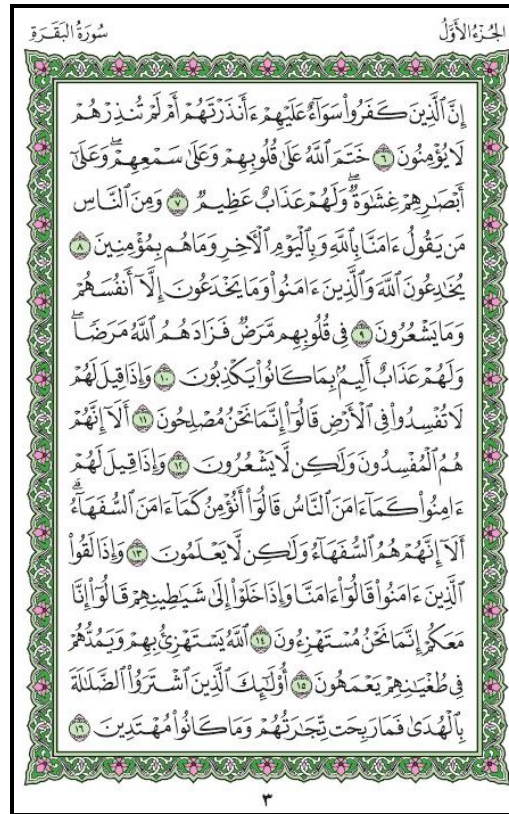 الجُزْءُ الأَوَّلُ
سُورَةُ البَقَرَةِ
إِنَّ ٱلَّذِينَ كَفَرُوا۟ سَوَآءٌ عَلَيْهِمْ ءَأَنذَرْتَهُمْ أَمْ لَمْ تُنذِرْهُمْ
لَا يُؤْمِنُونَ ٦ خَتَمَ ٱللَّهُ عَلَىٰ قُلُوبِهِمْ وَعَلَىٰ سَمْعِهِمْ ۖ وَعَلَىٰٓ
أَبْصَـٰرِهِمْ غِشَـٰوَةٌ ۖ وَلَهُمْ عَذَابٌ عَظِيمٌ ٧ وَمِنَ ٱلنَّاسِ
مَن يَقُولُ ءَامَنَّا بِٱللَّهِ وَبِٱلْيَوْمِ ٱلْـَٔاخِرِ وَمَا هُم بِمُؤْمِنِينَ ٨
يُخَـٰدِعُونَ ٱللَّهَ وَٱلَّذِينَ ءَامَنُوا۟ وَمَا يَخْدَعُونَ إِلَّآ أَنفُسَهُمْ
وَمَا يَشْعُرُونَ ٩ فِى قُلُوبِهِم مَّرَضٌ فَزَادَهُمُ ٱللَّهُ مَرَضًا ۖ
وَلَهُمْ عَذَابٌ أَلِيمٌۢ بِمَا كَانُوا۟ يَكْذِبُونَ ١٠ وَإِذَا قِيلَ لَهُمْ
لَا تُفْسِدُوا۟ فِى ٱلْأَرْضِ قَالُوٓا۟ إِنَّمَا نَحْنُ مُصْلِحُونَ ١١ أَلَآ إِنَّهُمْ
هُمُ ٱلْمُفْسِدُونَ وَلَـٰكِن لَّا يَشْعُرُونَ ١٢ وَإِذَا قِيلَ لَهُمْ
ءَامِنُوا۟ كَمَآ ءَامَنَ ٱلنَّاسُ قَالُوٓا۟ أَنُؤْمِنُ كَمَآ ءَامَنَ ٱلسُّفَهَآءُ ۗ
أَلَآ إِنَّهُمْ هُمُ ٱلسُّفَهَآءُ وَلَـٰكِن لَّا يَعْلَمُونَ ١٣ وَإِذَا لَقُوا۟
ٱلَّذِينَ ءَامَنُوا۟ قَالُوٓا۟ ءَامَنَّا وَإِذَا خَلَوْا۟ إِلَىٰ شَيَـٰطِينِهِمْ قَالُوٓا۟ إِنَّا
مَعَكُمْ إِنَّمَا نَحْنُ مُسْتَهْزِءُونَ ١٤ ٱللَّهُ يَسْتَهْزِئُ بِهِمْ وَيَمُدُّهُمْ
فِى طُغْيَـٰنِهِمْ يَعْمَهُونَ ١٥ أُو۟لَـٰٓئِكَ ٱلَّذِينَ ٱشْتَرَوُا۟ ٱلضَّلَـٰلَةَ
بِٱلْهُدَىٰ فَمَا رَبِحَت تِّجَـٰرَتُهُمْ وَمَا كَانُوا۟ مُهْتَدِينَ ١٦
٣